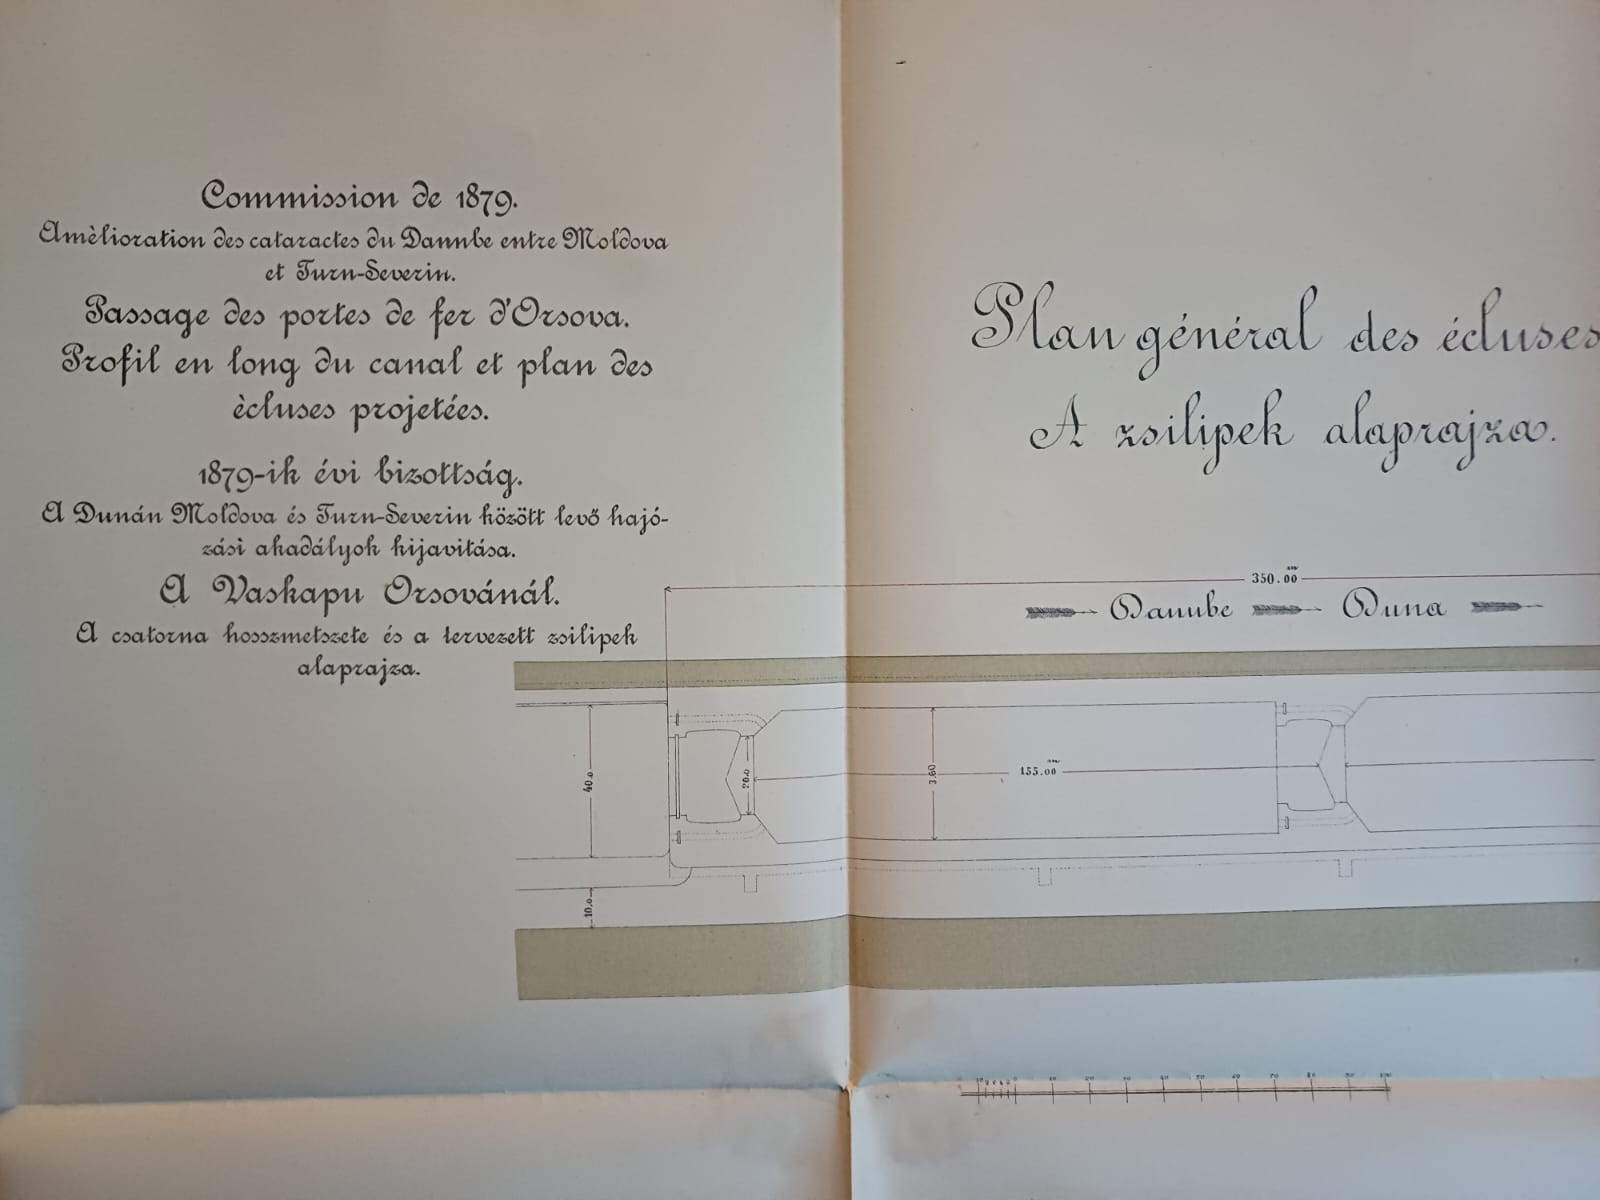 Commission de 1879.
Amèlioration des cataractes du Danube entre Moldova
et Turn-Severin.
Passage des portes de fer d'Orsova.
Profil en long du canal et plan des
ècluses projetées.
1879-ik évi bizottság.
A Dunán Moldova és Turn-Severin között levő hajó-
zási akadályok kijavitása.
A Vaskapu Orsovánál.
A csatorna hosszmetszete és a tervezett zsilipek
alaprajza.
Plan général des écluses
A zsilipek alaprajza.
350.00
Danube Duna
40.0
20.0
3.60
155.00
10.0
10 20 30 40 50 60 70 80 90 100